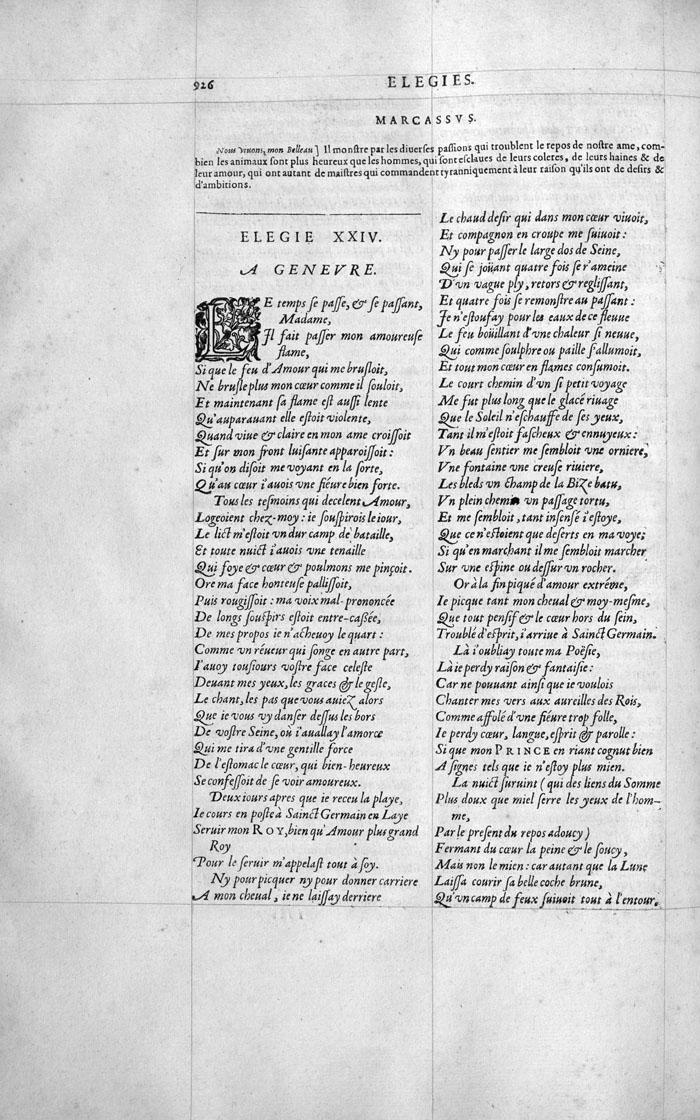 926 ELEGIES.
MARCASSVS.
Nous viuons, mon Belleau] Il monſtre par les diuerſes paſſions qui troublent le repos de noſtre ame, com-
bien les animaux ſont plus heureux que les hommes, qui ſont eſclaues de leurs coleres, de leurs haines & de
leur amour, qui ont autant de maiſtres qui commandent tyranniquement à leur raiſon qu'ils ont de deſirs &
d'ambitions.
ELEGIE XXIV.
A GENEVRE.
LE temps ſe paſſe, & ſe paſſant,
Madame,
Il fait paſſer mon amoureuſe
flame,
Si que le feu d'Amour qui me bruſloit,
Ne bruſle plus mon cœur comme il ſouloit,
Et maintenant ſa flame eſt auſſi lente
Qu'auparauant elle eſtoit violente,
Quand viue & claire en mon ame croiſſoit
Et ſur mon front luiſante apparoiſſoit:
Si qu'on diſoit me voyant en la ſorte,
Qu'au cœur i'auois vne fiéure bien forte.
Tous les teſmoins qui decelent Amour,
Logeoient chez-moy: ie ſouſpirois le iour,
Le lict m'eſtoit vn dur camp de bataille,
Et toute nuict i'auois vne tenaille
Qui foye & cœur & poulmons me pinçoit.
Ore ma face honteuſe palliſſoit,
Puis rougiſſoit: ma voix mal-prononcée
De longs ſouſpirs eſtoit entre-caſſée,
De mes propos ie n'acheuoy le quart:
Comme vn réueur qui ſonge en autre part,
I'auoy touſiours voſtre face celeſte
Deuant mes yeux, les graces & le geſte,
Le chant, les pas que vous auiez alors
Que ie vous vy danſer deſſus les bors
De voſtre Seine, où i'auallay l'amorce
Qui me tira d'vne gentille force
De l'eſtomac le cœur, qui bien-heureux
Se confeſſoit de ſe voir amoureux.
Deux iours apres que ie receu la playe,
Ie cours en poſte à Sainct Germain en Laye
Seruir mon ROY, bien qu'Amour plus grand
Roy
Pour le ſeruir m'appelaſt tout à ſoy.
Ny pour picquer ny pour donner carriere
A mon cheual, ie ne laiſſay derriere
Le chaud deſir qui dans mon cœur viuoit,
Et compagnon en croupe me ſuiuoit:
Ny pour paſſer le large dos de Seine,
Qui ſe joüant quatre fois ſe r'ameine
D'vn vague ply, retors & regliſſant,
Et quatre fois ſe remonſtre au paſſant:
Je n'eſtoufay pour les eaux de ce fleuue
Le feu boüillant d'vne chaleur ſi neuue,
Qui comme ſoulphre ou paille s'allumoit,
Et tout mon cœur en flames conſumoit.
Le court chemin d'vn ſi petit voyage
Me fut plus long que le glacé riuage
Que le Soleil n'eſchauffe de ſes yeux,
Tant il m'eſtoit faſcheux & ennuyeux:
Vn beau ſentier me ſembloit vne orniere,
Vne fontaine vne creuſe riuiere,
Les bleds vn champ de la Bize batu,
Vn plein chemin vn paſſage tortu,
Et me ſembloit, tant inſenſé i'eſtoye,
Que ce n'eſtoient que deſerts en ma voye;
Si qu'en marchant il me ſembloit marcher
Sur vne eſpine ou deſſur vn rocher.
Or à la fin piqué d'amour extréme,
Ie picque tant mon cheual & moy-meſme,
Que tout penſif & le cœur hors du ſein,
Troublé d'eſprit, i'arriue à Sainct Germain.
Là i'oubliay toute ma Poëſie,
Là ie perdy raiſon & fantaiſie:
Car ne pouuant ainſi que ie voulois
Chanter mes vers aux aureilles des Rois,
Comme affolé d'vne fiéure trop folle,
Ie perdy cœur, langue, eſprit & parole:
Si que mon PRINCE en riant cognut bien
A ſignes tels que ie n'eſtoy plus mien.
La nuict ſuruint (qui des liens du Somme
Plus doux que miel ſerre les yeux de l'hom-
me,
Par le preſent du repos adoucy)
Fermant du cœur la peine & le ſoucy,
Mais non le mien: car autant que la Lune
Laiſſa courir ſa belle coche brune,
Qu'vn camp de feux ſuiuoit tout à l'entour,